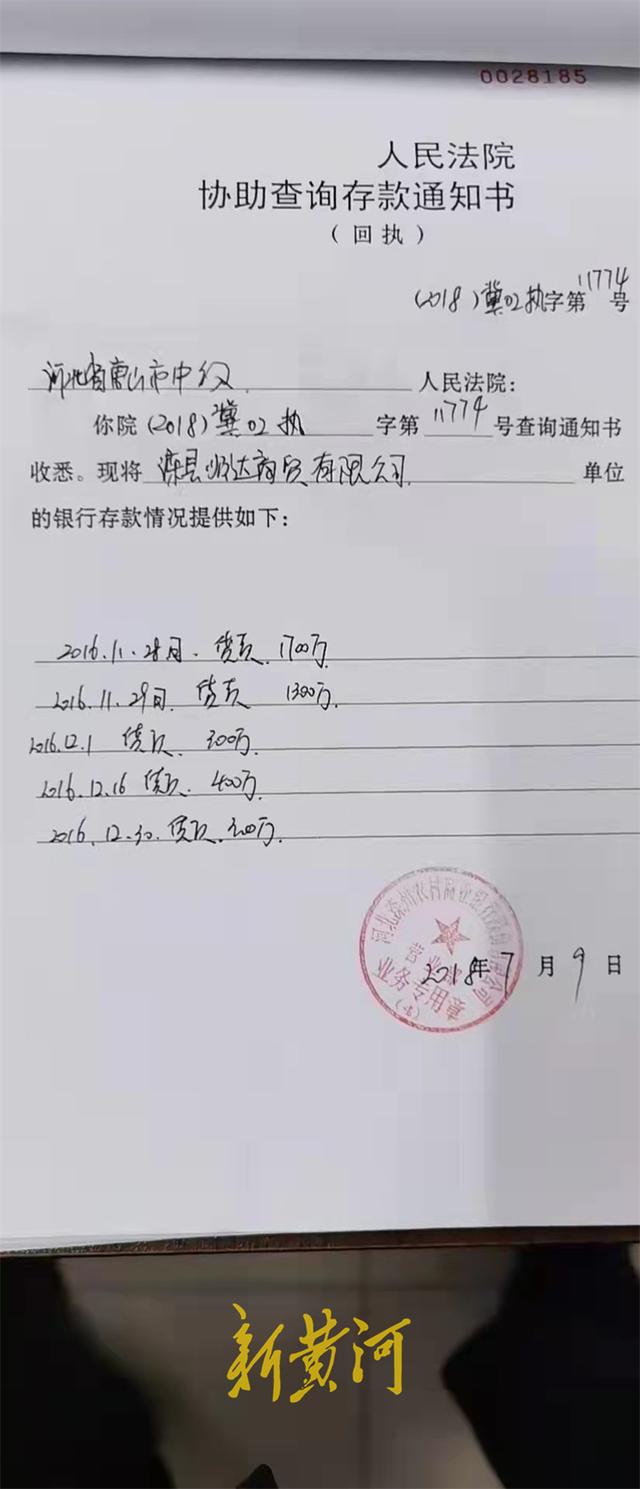 0028185
人民法院
协助查询存款通知书
（回执）
(2018)冀02执字第11774号
河北省唐山市中级人民法院：
你院(2018)冀02执字第11774号查询通知书
收悉。现将滦县顺达商贸有限公司单位
的银行存款情况提供如下：
2016.11.28日. 货款. 1700万.
2016.11.29日. 货款 1300万.
2016.12.1 货款. 300万.
2016.12.16 货款. 400万.
2016.12.30. 货款. 300万.
河北滦州农村商业银行股份有限公司
营业部
业务专用章
(4)
2018年7月9日
新黄河